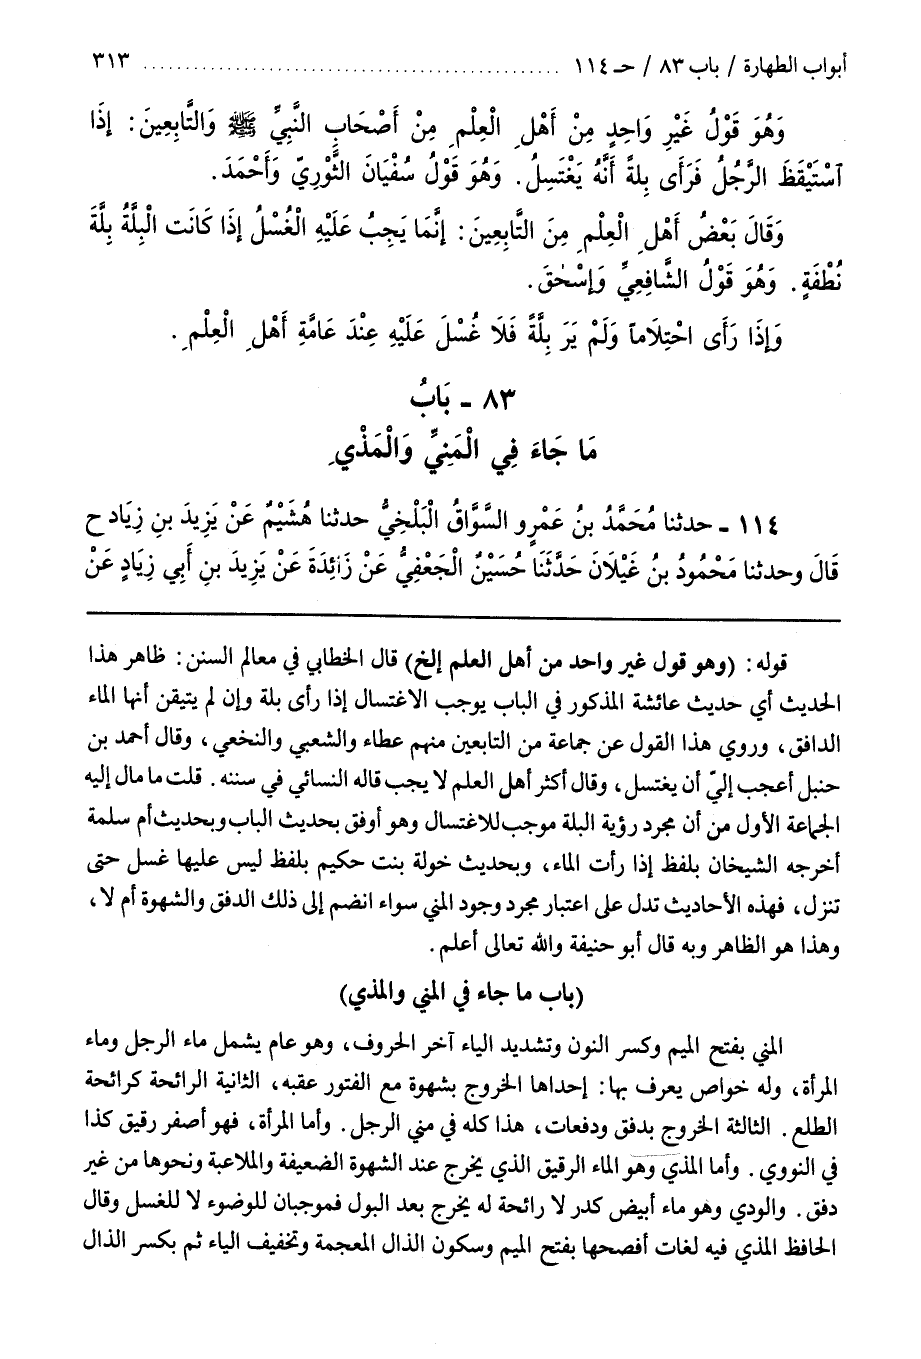 أبواب الطهارة / باب ٨٣ / حـ ١١٤ ............................................ ٣١٣
وَهُوَ قَوْلُ غَيْرِ وَاحِدٍ مِنْ أَهْلِ الْعِلْمِ مِنْ أَصْحَابِ النَّبِيِّ ﷺ وَالتَّابِعِينَ: إِذَا
ٱسْتَيْقَظَ الرَّجُلُ فَرَأَى بِلةً أَنَّهُ يَغْتَسِلُ. وَهُوَ قَوْلُ سُفْيَانَ الثَّوْرِيّ وَأَحْمَدَ.
وَقَالَ بَعْضُ أَهْلِ الْعِلْمِ مِنَ التَّابِعِينَ: إِنَّمَا يَجِبُ عَلَيْهِ الْغُسْلُ إِذَا كَانَت الْبِلَّةُ بِلَّةَ
نُطْفَةٍ. وَهُوَ قَوْلُ الشَّافِعِيِّ وَإِسْحٰقَ.
وَإِذَا رَأَى احْتِلَاماً وَلَمْ يَرَ بِلَّةً فَلَا غُسْلَ عَلَيْهِ عِنْدَ عَامَّةِ أَهْلِ الْعِلْمِ.
٨٣ ـ بَابُ
مَا جَاءَ فِي الْمَنِيِّ وَالْمَذْيِ
١١٤ ـ حدثنا مُحَمَّدُ بنُ عَمْرٍو السَّوَّاقُ الْبَلْخِيُّ حدثنا هُشَيْمٌ عَنْ يَزِيدَ بنِ زِيَاد ح
قَالَ وحدثنا مَحْمُودُ بنُ غَيْلَانَ حَدَّثَنَا حُسَيْنٌ الْجَعْفِيُّ عَنْ زَائِدَةَ عَنْ يَزِيدَ بنِ أَبِي زِيَادٍ عَنْ
قوله: (وهو قول غير واحد من أهل العلم إلخ) قال الخطابي في معالم السنن: ظاهر هذا
الحديث أي حديث عائشة المذكور في الباب يوجب الاغتسال إذا رأى بلة وإن لم يتيقن أنها الماء
الدافق، وروي هذا القول عن جماعة من التابعين منهم عطاء والشعبي والنخعي، وقال أحمد بن
حنبل أعجب إليّ أن يغتسل، وقال أكثر أهل العلم لا يجب قاله النسائي في سننه. قلت ما مال إليه
الجماعة الأول من أن مجرد رؤية البلة موجب للاغتسال وهو أوفق بحديث الباب وبحديث أم سلمة
أخرجه الشيخان بلفظ إذا رأت الماء، وبحديث خولة بنت حكيم بلفظ ليس عليها غسل حتى
تنزل، فهذه الأحاديث تدل على اعتبار مجرد وجود المني سواء انضم إلى ذلك الدفق والشهوة أم لا،
وهذا هو الظاهر وبه قال أبو حنيفة والله تعالى أعلم.
(باب ما جاء في المني والمذي)
المني بفتح الميم وكسر النون وتشديد الياء آخر الحروف، وهو عام يشمل ماء الرجل وماء
المرأة، وله خواص يعرف بها: إحداها الخروج بشهوة مع الفتور عقبه، الثانية الرائحة كرائحة
الطلع. الثالثة الخروج بدفق ودفعات، هذا كله في مني الرجل. وأما المرأة، فهو أصفر رقيق كذا
في النووي. وأما المذي وهو الماء الرقيق الذي يخرج عند الشهوة الضعيفة والملاعبة ونحوها من غير
دفق. والودي وهو ماء أبيض كدر لا رائحة له يخرج بعد البول فموجبان للوضوء لا للغسل وقال
الحافظ المذي فيه لغات أفصحها بفتح الميم وسكون الذال المعجمة وتخفيف الياء ثم بكسر الذال